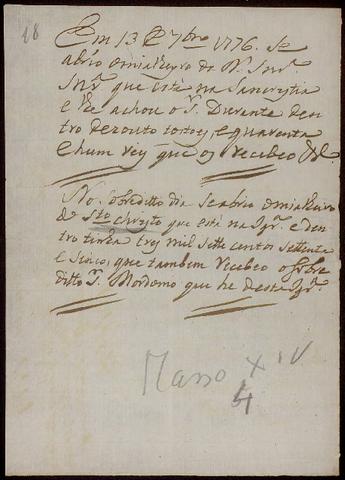 18
Em 13 de 7bro 1776. Se
abrio o mialheyro de N. Snr.
Snr. que está na Sancrystia
e se achou o Sr. Durante den
tro dezouto tostoys e quarenta
e hum rey que os recebeo
No sobreditto dia se abrio o mialheiro
de Sto Christo que está na Igr.ª e den
tro tinha trez mil sette centos settenta
e sinco, que tambem recebeo o sobre
ditto Sr. Mordomo que he desta Igr.ª
Masso XIV
4